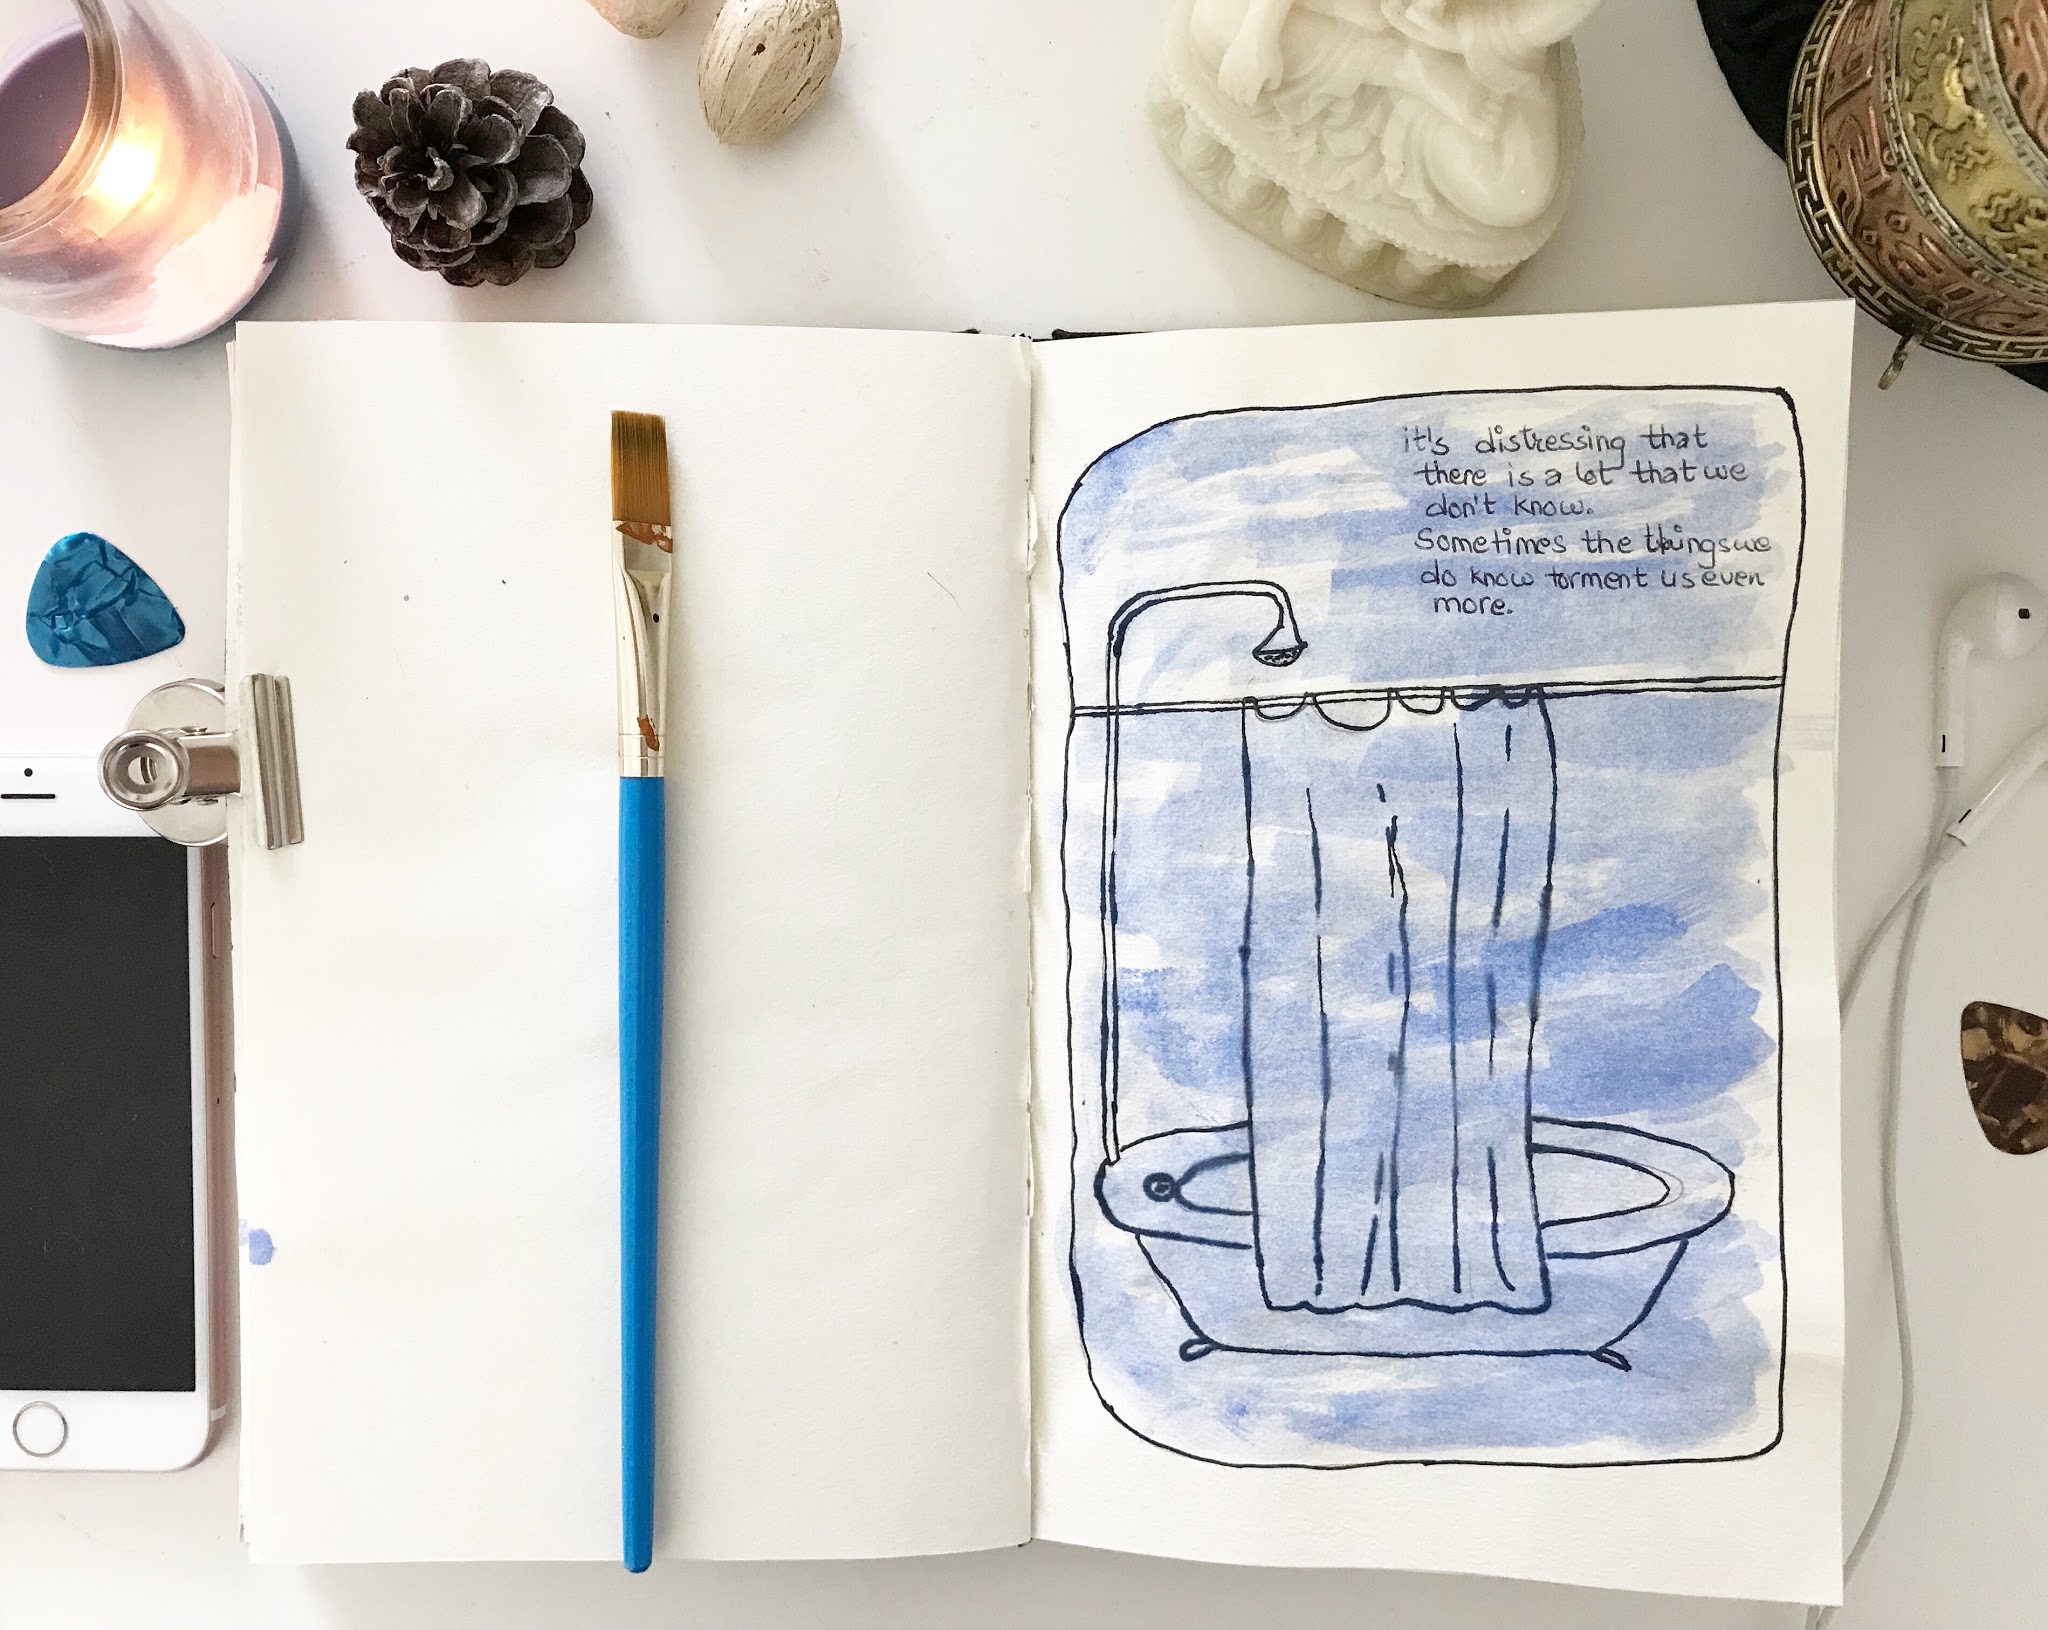 it's distressing that
there is a lot that we
don't know.
Sometimes the things we
do know torment us even
more.